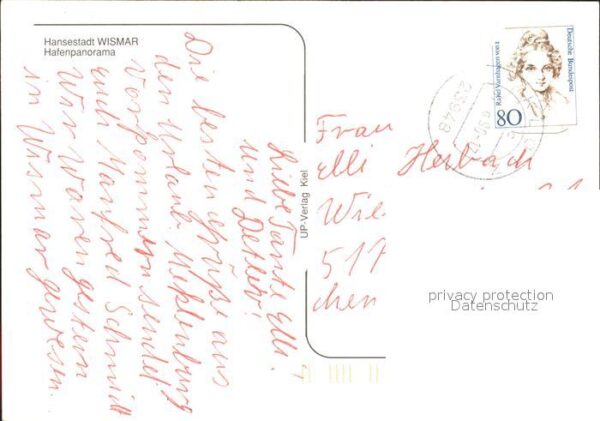 Hansestadt WISMAR
Hafenpanorama
Liebe Tante Elli!
und Detlev!
Die besten Grüße aus
den Urlaub. Meklenburg
Vorpommern sendet
euch Manfred Schmidt
Wir waren gestern
in Wismar gewesen.
UP-Verlag Kiel
Deutsche Bundespost
Rahel Varnhagen von Ense
80
Frau
Elli Herbach
Wie
517
chen
privacy protection
Datenschutz